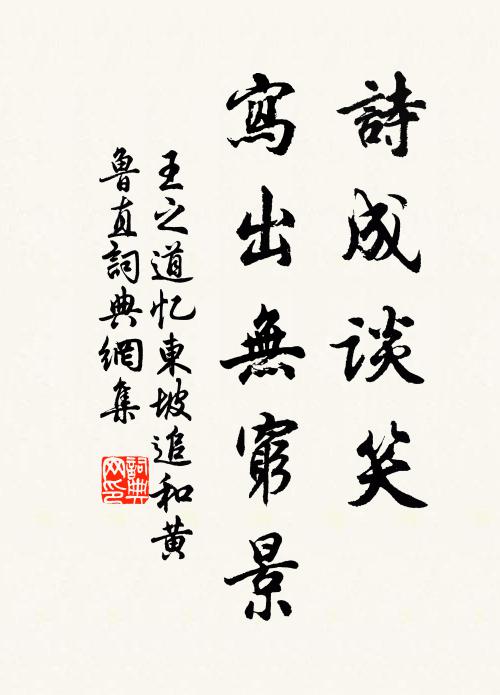 詩成談笑
寫出無窮景
王之道忆東坡追和黄
魯直詞典網集
詞典
网印